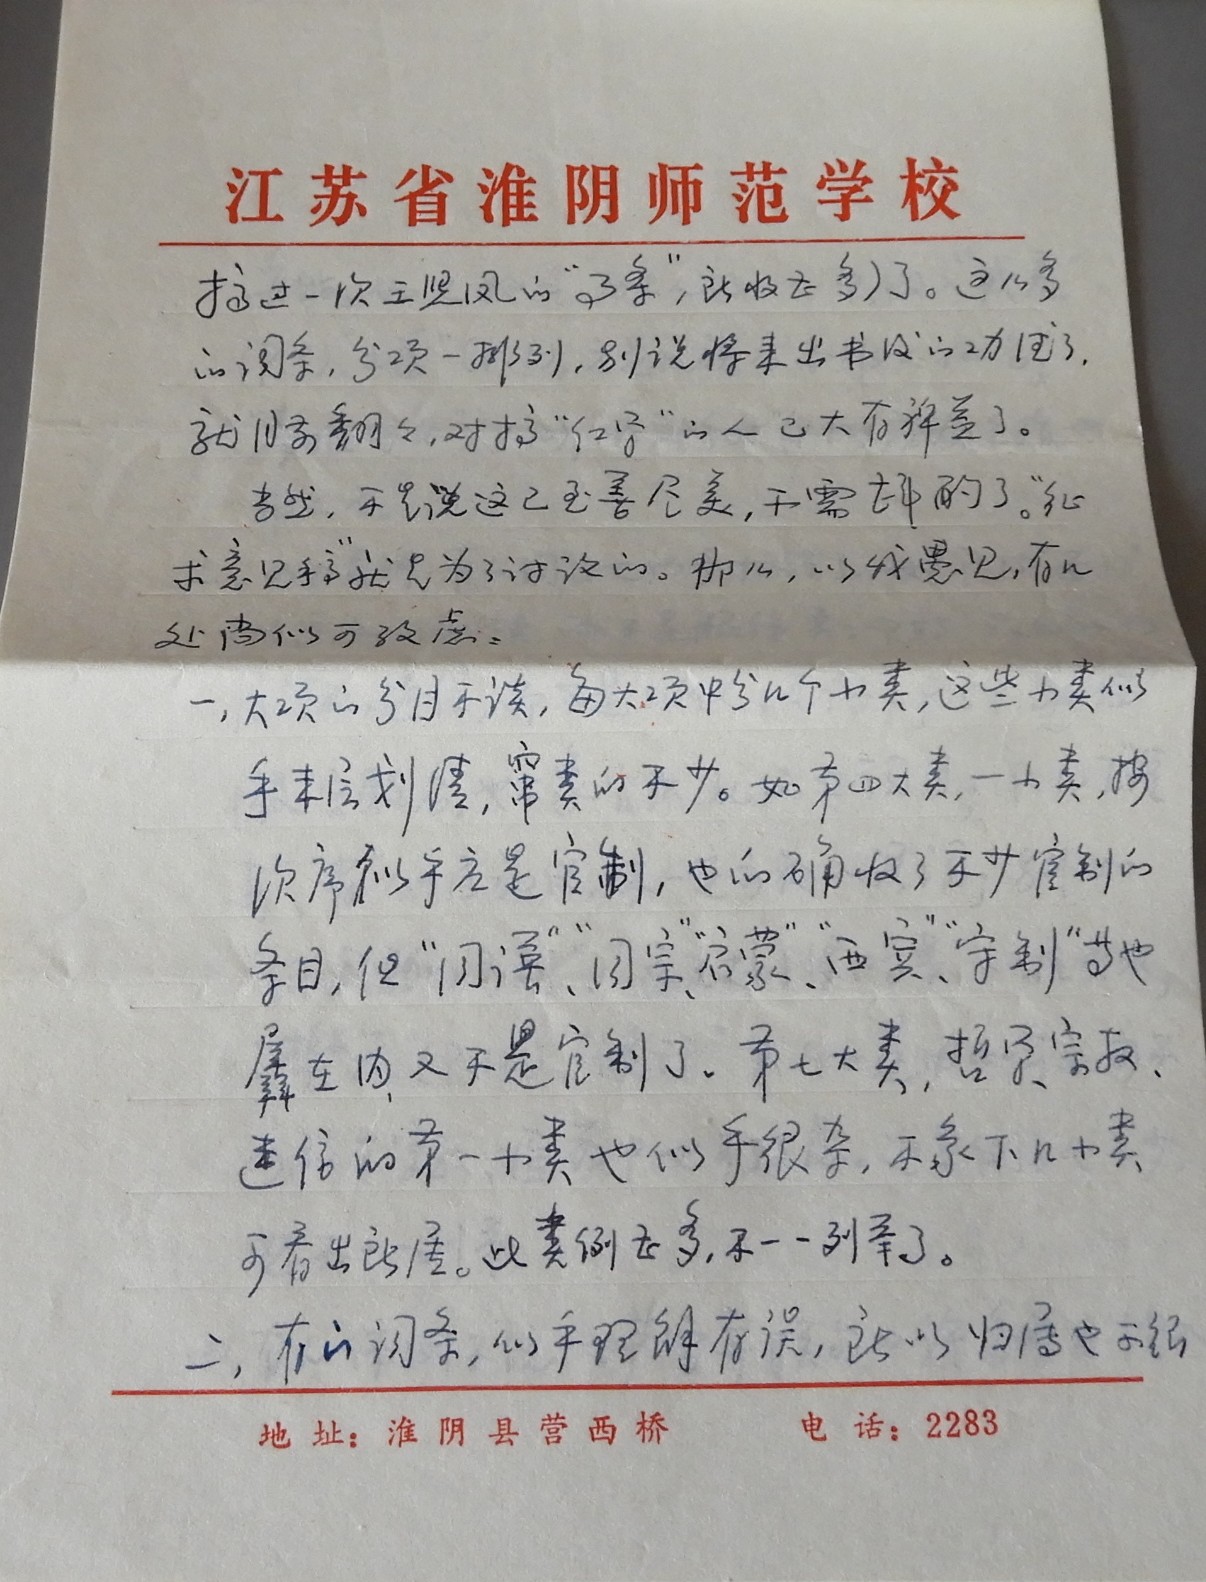 江苏省淮阴师范学校
搞过一次王熙凤的“词条”,所收甚多)了。这么多
的词条,分项一排列,别说将来出书后的功德了,
就目前翻々,对搞“红学”的人已大有裨益了。
当然,不是说这已至善尽美,不需斟酌了。“征
求意见稿”就是为了讨论的。那么,以我愚见,有几
处尚似可考虑:
一,大项的分目不谈,每大项中分几个小类,这些小类似
乎未层划清,窜类的不少。如第四大类,一小类,按
次序似乎应是官制,也的确收了不少官制的
条目,但“同谱”、“同宗”“启蒙”、“西宾”、“守制”等也
羼在内,又不是官制了。第七大类,哲学、宗教、
迷信的第一小类也似乎很杂,不象下几小类
可看出所居。此类例甚多,不一一列举了。
二,有的词条,似乎理解有误,所以归属也不很
地址:淮阴县营西桥 电话:2283